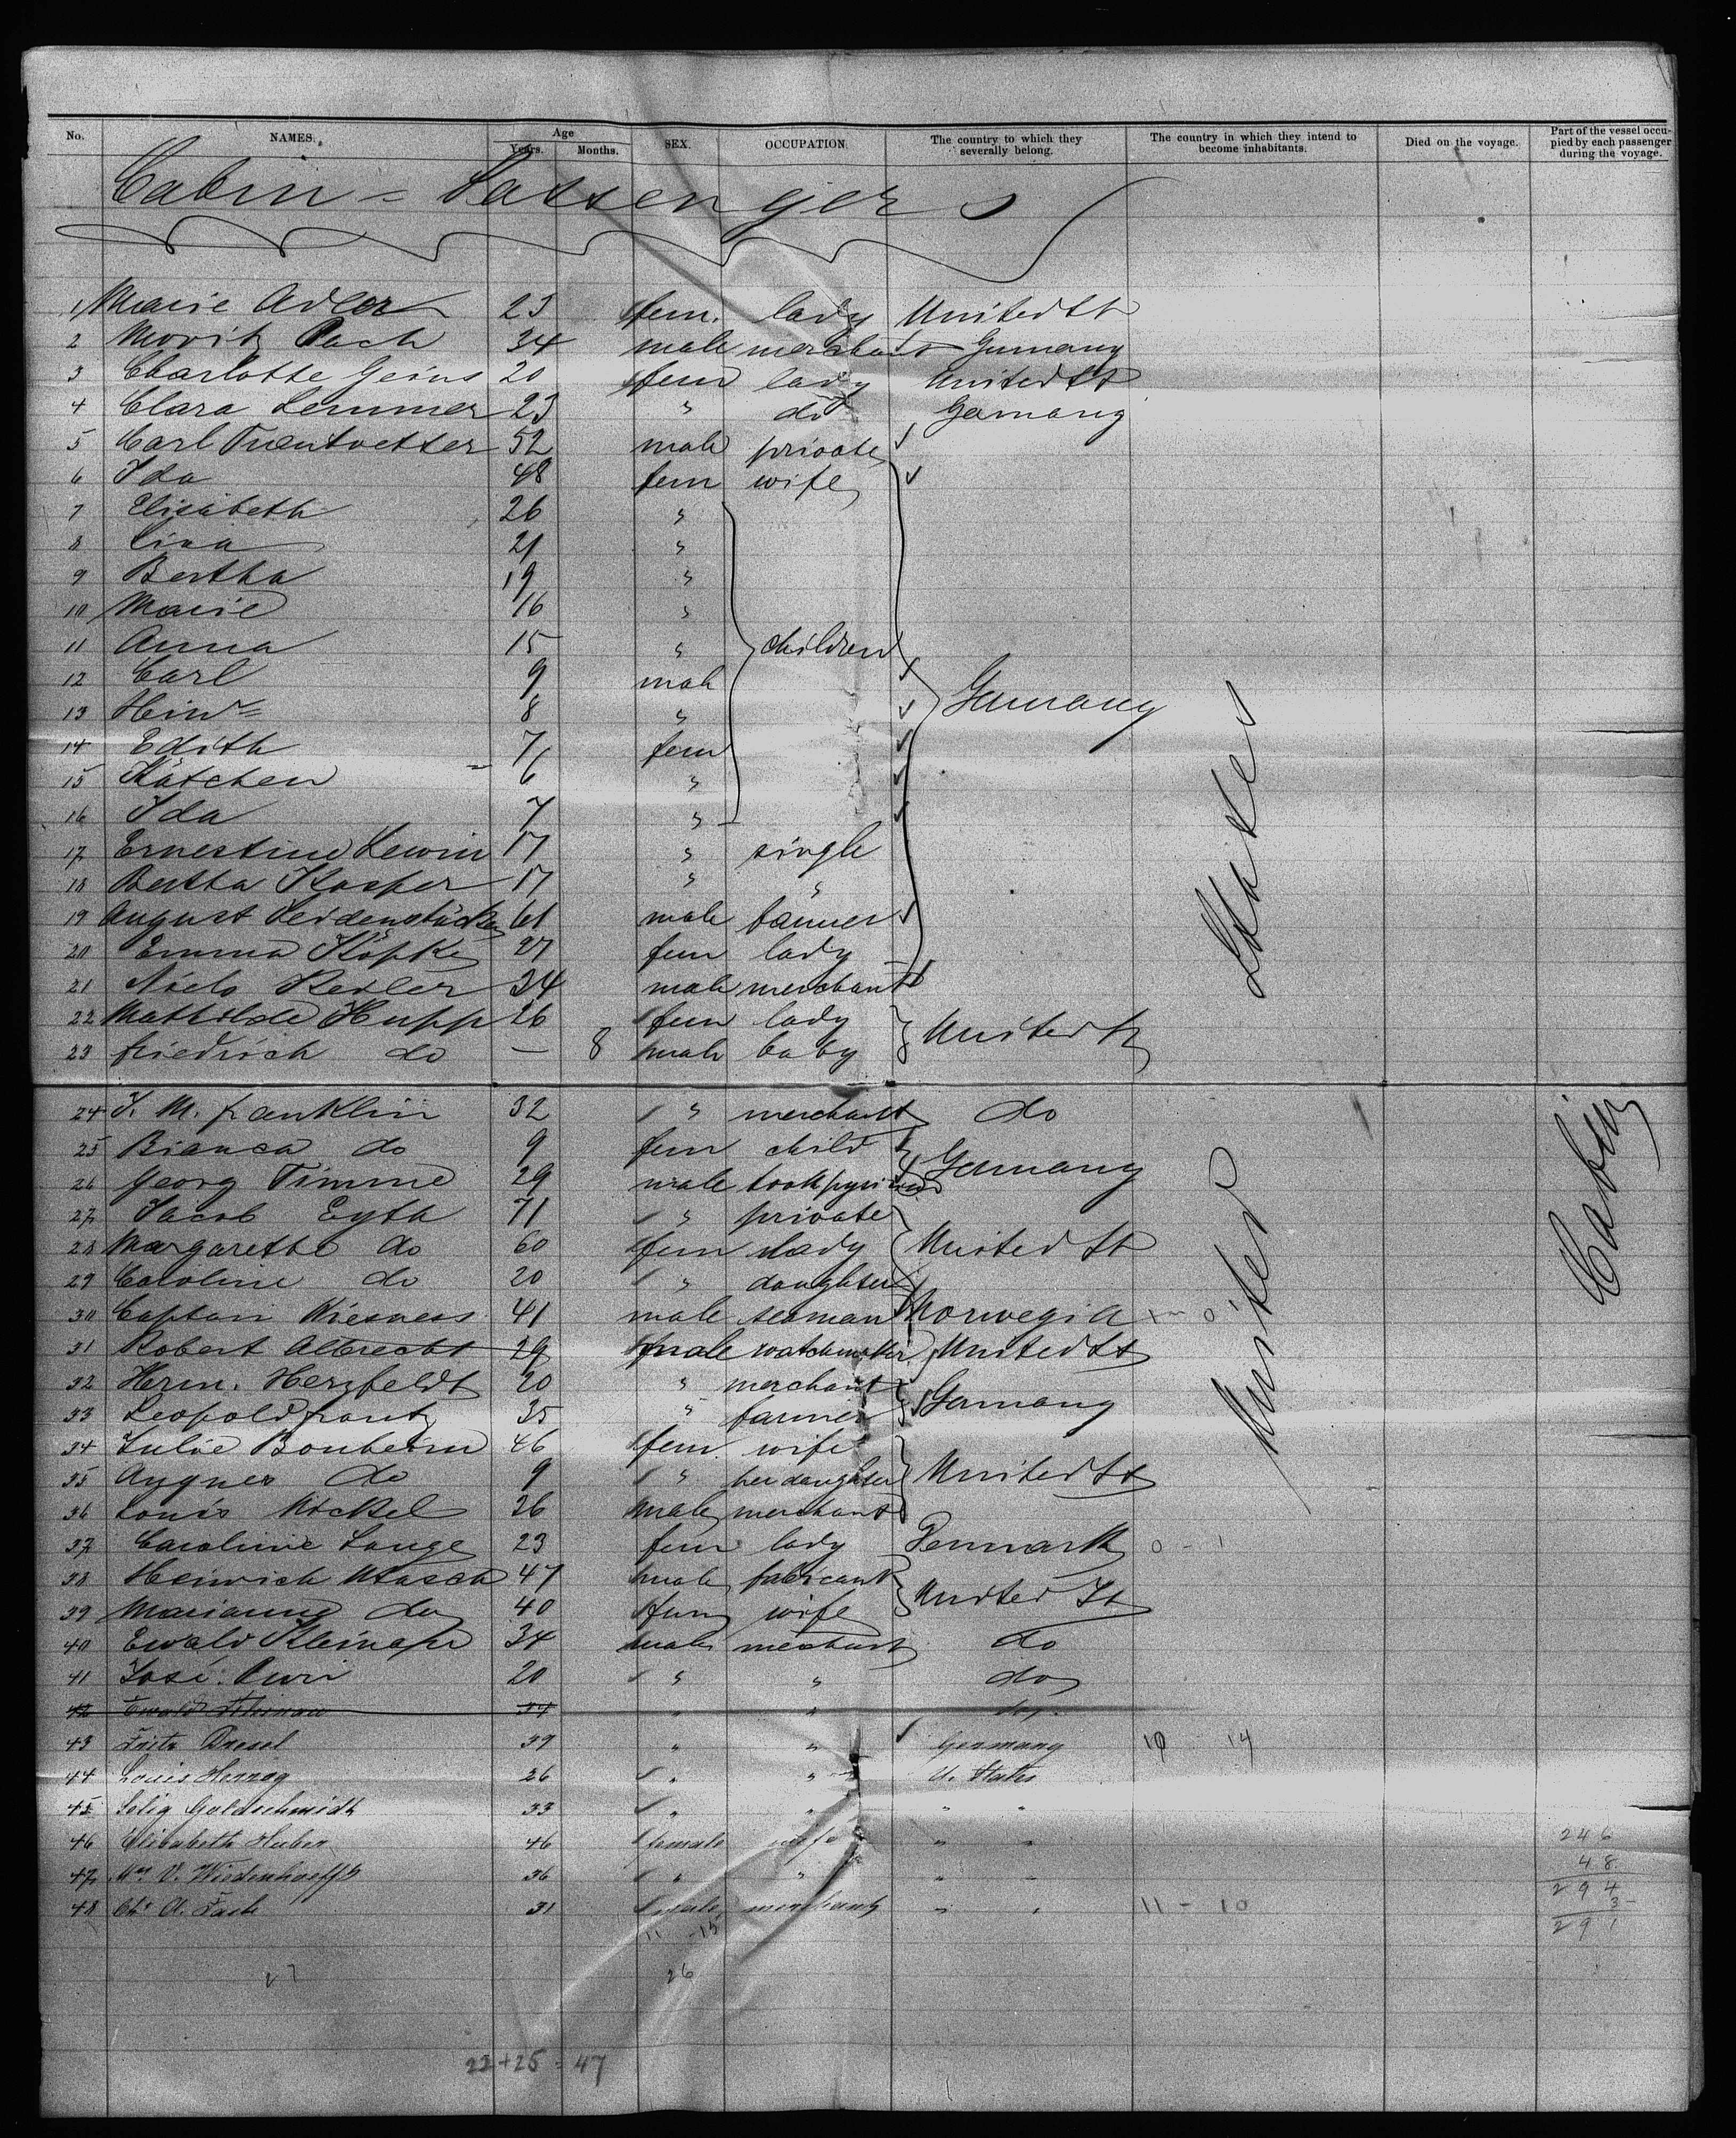 No. NAMES. Age Years. Months. SEX. OCCUPATION. The country to which they severally belong. The country in which they intend to become inhabitants. Died on the voyage. Part of the vessel occupied by each passenger during the voyage.
Cabin = Passengers
1 Marie Adler 23 fem. lady United St
2 Moritz Pach 34 male merchant Germany
3 Charlotte Geius 20 fem lady United St
4 Clara Lemmer 23 " do Germany
5 Carl Truentvetter 52 male private
6 Ida 48 fem wife
7 Elisabeth 26 "
8 Lina 21 "
9 Bertha 19 "
10 Marie 16 "
11 Anna 15 " children
12 Carl 9 male
13 Hinr 8 " Germany
14 Edith 7 fem
15 Kätchen 6 "
16 Ida 7 "
17 Ernestine Lewin 17 " single
18 Bertha Kasper 17 " "
19 August Seidenstücker 61 male farmer
20 Emma Köpke 27 fem lady
21 Niels Redler 34 male merchant
22 Mathilde Hupp 26 fem lady United St
23 friedrich do — 8 male baby
24 J. M. franklin 32 " merchant do
25 Bianca do 9 fem child Germany
26 Georg Timme 29 male
27 Jacob Eyth 71 " private
28 Margarethe do 60 fem lady United St
29 Caroline do 20 " daughter
30 Captain 41 male seaman Norwegia
31 Robert Albrecht 29 male watchmaker United St
32 Herm. Herzfeldt 20 " merchant Germany
33 Leopold frantz 35 " farmer
34 Julie Bonheim 46 fem wife
35 Aygnes do 9 " her daughter United St
36 Louis Möckel 26 male merchant
37 Caroline Lange 23 fem lady Denmark
38 Heinrich 47 male fabricant United St
39 Marianne do 40 fem wife
40 Ewald 34 male merchant do
41 José 20 " " do
42 Ewald 34 " " do
43 Fritz Dresel 39 " " Germany 10 14
44 Louis Herzog 26 " " U. States
45 Selig Goldschmidt 33 " " " "
46 Elisabeth Huber 46 female wife " "
47 Mrs V. Wiedenhoefft 36 " " " "
48 Chs A. 31 male merchant " " 11 - 10
United States
Cabin
246
48
294
3-
291
11 - 15
26
22+25 = 47